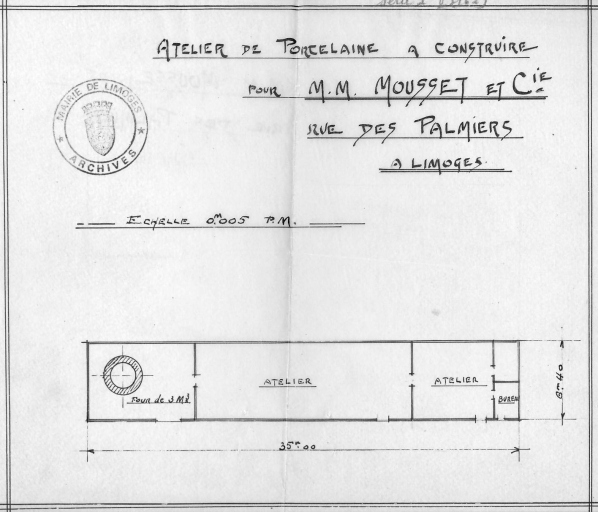 ATELIER DE PORCELAINE A CONSTRUIRE
POUR M.M. MOUSSET ET Cie
RUE DES PALMIERS
A LIMOGES.
MAIRIE DE LIMOGES
* ARCHIVES *
ECHELLE 0m005 P.M.
ATELIER
ATELIER
Four de 3 M3.
BUREAU
6m.40
35m.00